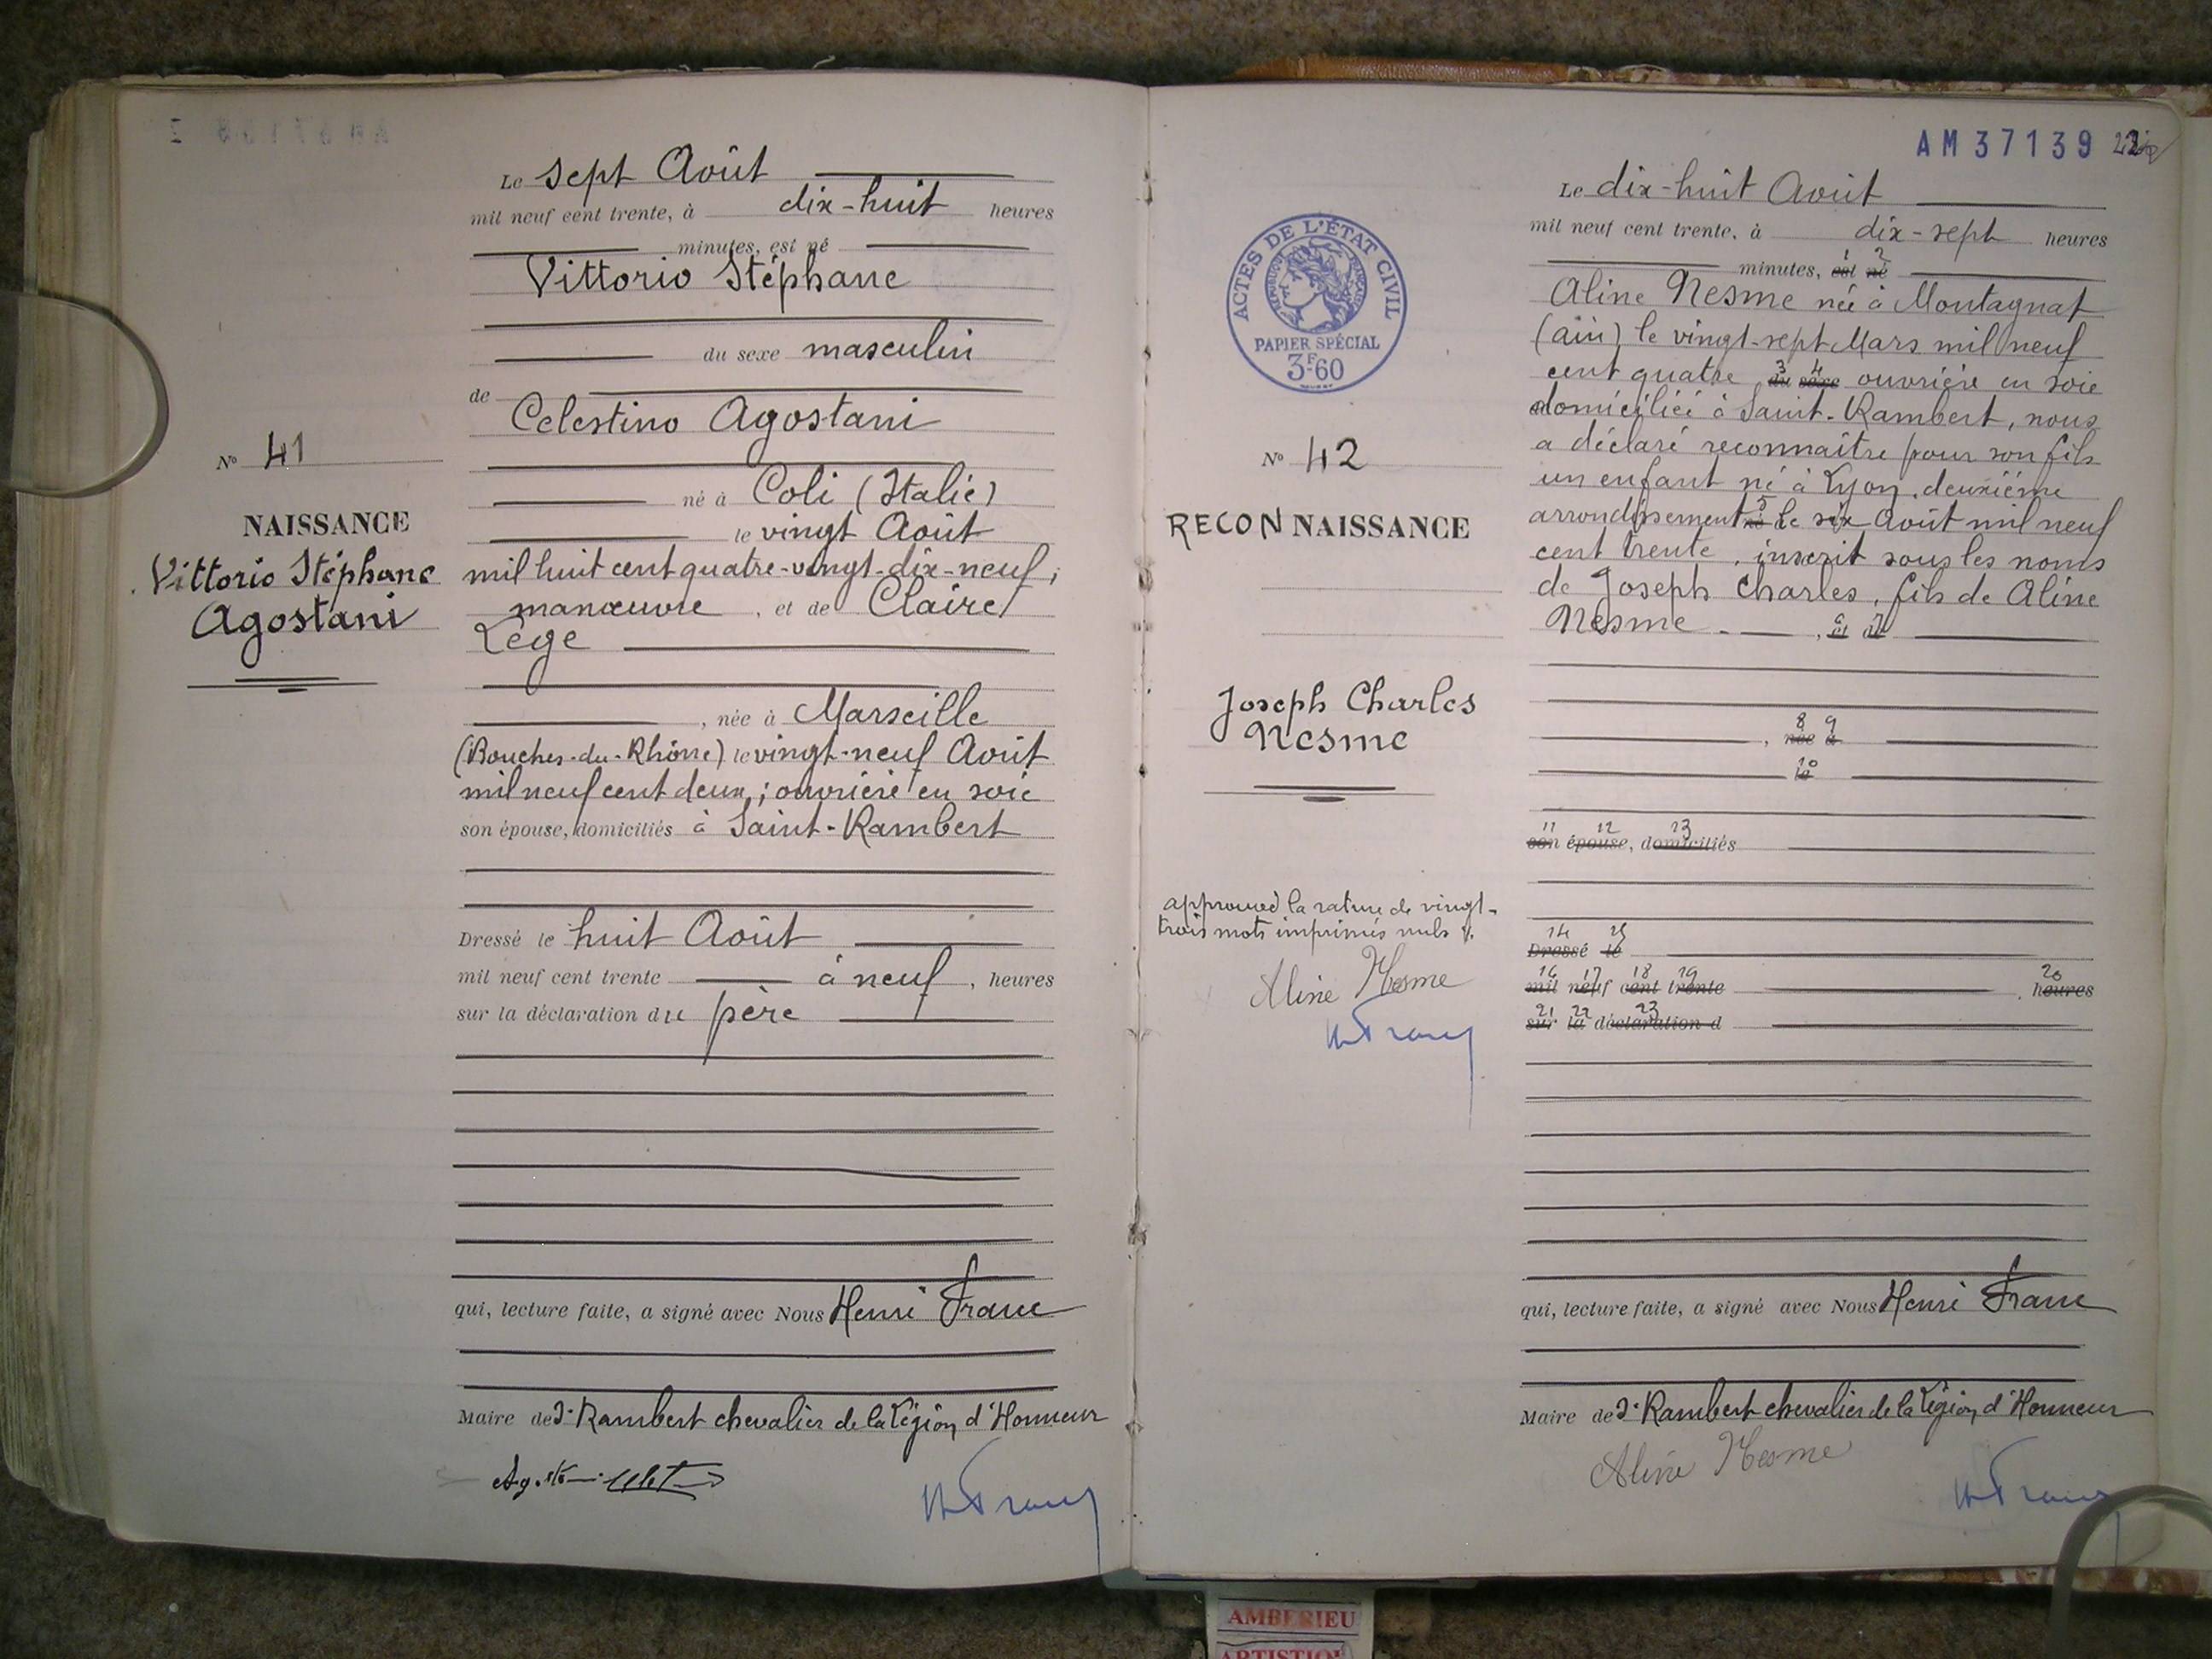 Le sept Août
mil neuf cent trente, à dix-huit heures
minutes, est né
Vittorio Stéphane
du sexe masculin
de
Celestino Agostani
né à Coli (Italie)
le vingt Août
mil huit cent quatre-vingt-dix-neuf;
manœuvre, et de Claire
Lège
, née à Marseille
(Bouches-du-Rhône) le vingt-neuf Août
mil neuf cent deux; ouvrière en soie
son épouse, domiciliés à Saint-Rambert
Dressé le huit Août
mil neuf cent trente à neuf, heures
sur la déclaration du père
qui, lecture faite, a signé avec Nous Henri Franc
Maire de St Rambert chevalier de la Légion d'Honneur
No 41
NAISSANCE
Vittorio Stéphane
Agostani
AM 37139
ACTES DE L'ÉTAT CIVIL
RÉPUBLIQUE FRANÇAISE
PAPIER SPÉCIAL
3F60
No 42
RECONNAISSANCE
Joseph Charles
Nesme
approuvé la rature de vingt-
trois mots imprimés nuls
Aline Nesme
H Franc
Le dix-huit Août
mil neuf cent trente, à dix-sept heures
1 2
minutes, est né
Aline Nesme née à Montagnat
(ain) le vingt-sept Mars mil neuf
3 4
cent quatre du sexe ouvrière en soie
domiciliée à Saint-Rambert, nous
a déclaré reconnaître pour son fils
un enfant né à Lyon, deuxième
5
arrondissement né le six Août mil neuf
cent trente, inscrit sous les noms
de Joseph Charles, fils de Aline
6 7
Nesme, et de
8 9
, née à
10
le
11 12 13
son épouse, domiciliés
14 15
Dressé le
16 17 18 19 20
mil neuf cent trente, heures
21 22 23
sur la déclaration d
qui, lecture faite, a signé avec Nous Henri Franc
Maire de St Rambert chevalier de la Légion d'Honneur
Aline Nesme
H Franc
H Franc
AMBERIEU